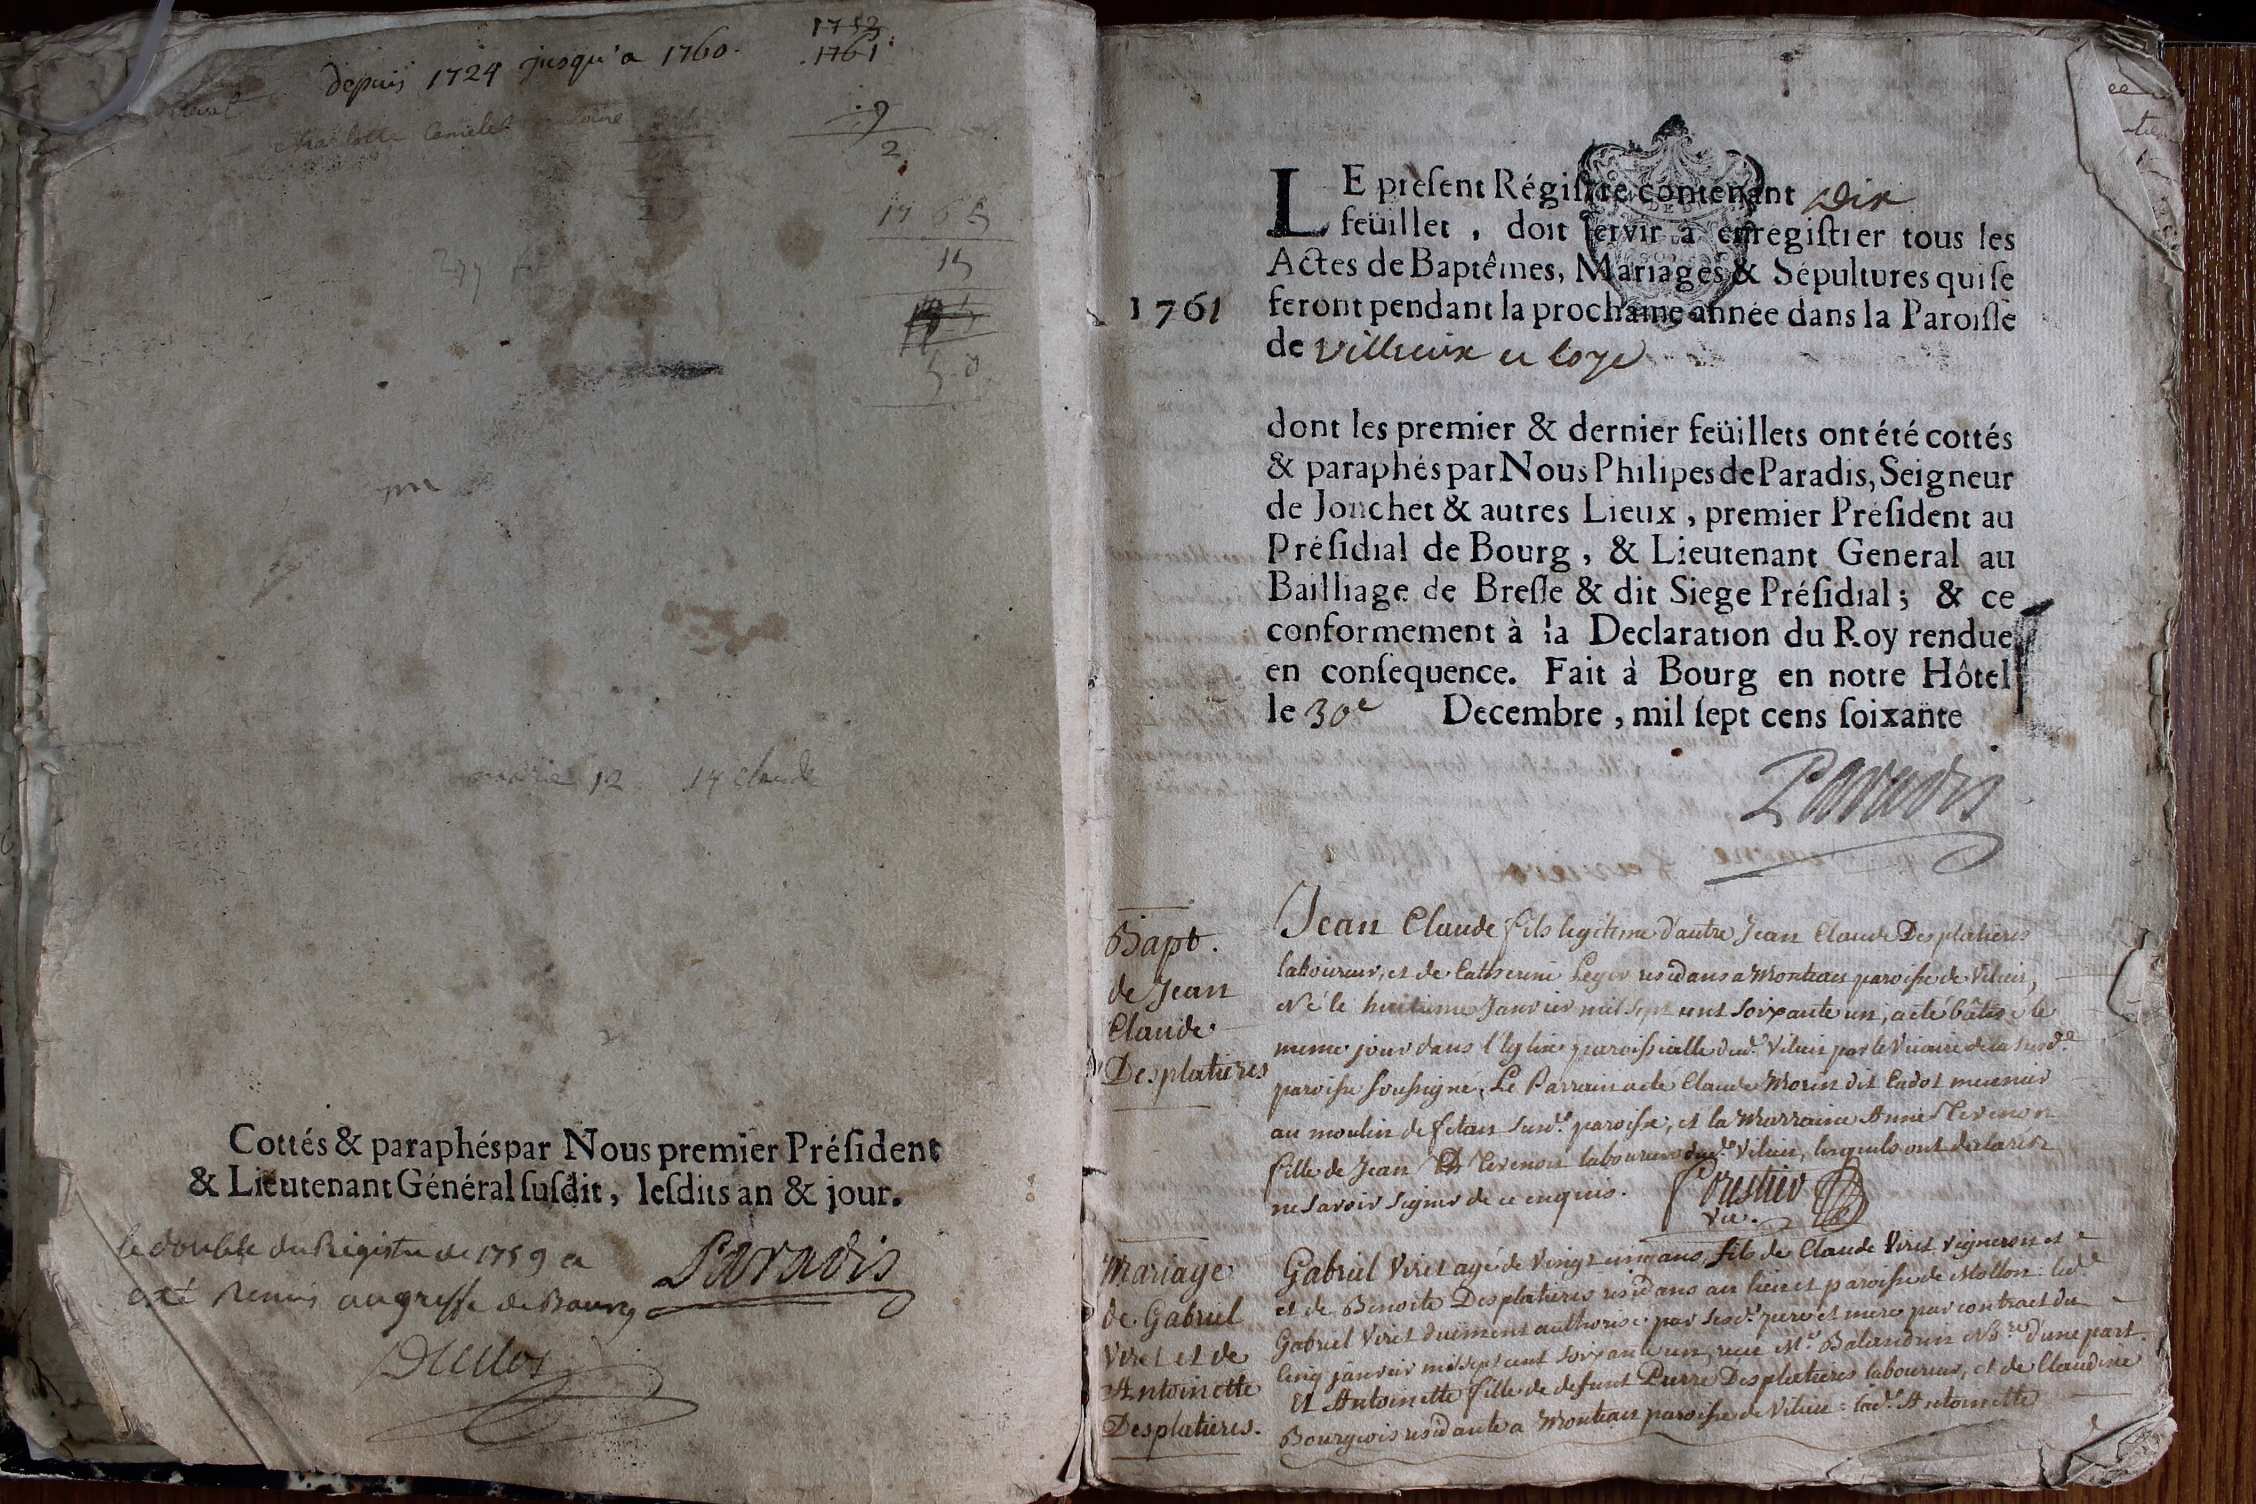 depuis 1724 jusqu'a 1760.
1753
1761
9
2
1765
15
50
marie 12 14 claude
Cottés & paraphés par Nous premier Préſident
& Lieutenant Général ſuſdit, leſdits an & jour.
le double du Régistre de 1759 a
eté remis au greffe de Bourg
Paradis
Duclos
LE preſent Régiſtre contenant Dix
feüillet, doit ſervir à enregiſtrer tous les
Actes de Baptêmes, Mariages & Sépultures qui ſe
1761
feront pendant la prochaine année dans la Paroiſſe
de Villieux et loye
dont les premier & dernier feüillets ont été cottés
& paraphés par Nous Philipes de Paradis, Seigneur
de Jonchet & autres Lieux, premier Préſident au
Préſidial de Bourg, & Lieutenant General au
Bailliage de Breſſe & dit Siege Préſidial; & ce
conformement à la Declaration du Roy rendue
en conſequence. Fait à Bourg en notre Hôtel
le 30e Decembre, mil ſept cens ſoixante
Paradis
Bapt.
de Jean
Claude
Desplatieres
Jean Claude fils legitime d'autre Jean Claude Desplatieres
laboureur, et de Catherine Leger residans a Monteau paroisse de Vilieu,
Né le huitieme Janvier mil sept cent soixante un, a eté bâtisé le
meme jour dans l'Eglise paroissialle dud. Vilieu par le Vicaire de la susd.e
paroisse soussigné, Le Parrain a eté Claude Morin dit Cadot meunier
au moulin de fetan susd.e paroisse, et la Marraine Anne Tevenon
fille de Jean Tevenon laboureur dud. Vilieu, lesquels ont declaré
ne savoir signer de ce enquis. Forestier
vic.
Mariage
de Gabriel
Viret et de
Antoinette
Desplatieres.
Gabriel Viret agé de vingt cinq ans, fils de Claude Viret vigneron et
et de Benoite Desplatieres residans au lieu et paroisse de Mollon: led.
Gabriel Viret duement authorisé par sesd. pere et mere par contract du
cinq janvier mil sept cent soixante un, reçu M.e Balandrin No.re d'une part.
Et Antoinette fille de defunt Pierre Desplatieres laboureur, et de Claudine
Bourgeois residante a Monteau paroisse de Vilieu: lad. Antoinette